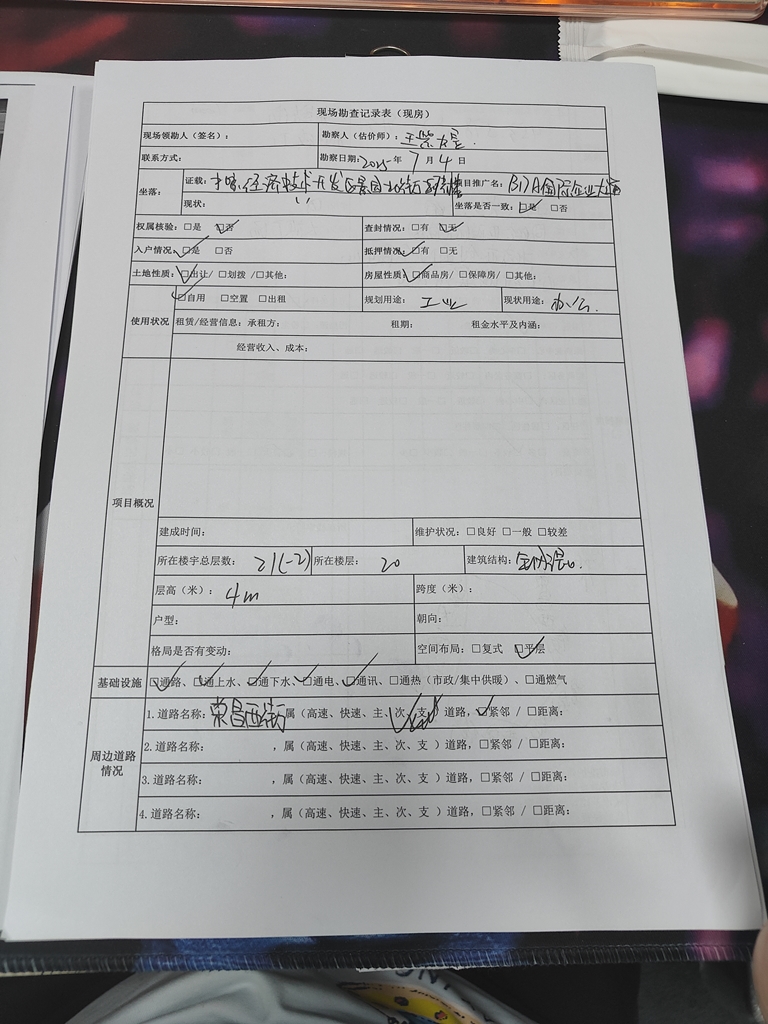 现场勘查记录表（现房）
现场领勘人（签名）： 勘察人（估价师）：
联系方式： 勘察日期:2025年 7 月 4 日
坐落： 证载: 经济技术开发区景园北街2 项目推广名: BDA国际企业大道
现状: 坐落是否一致:☑是 □否
权属核验:□是 ☑否 查封情况:□有 ☑无
入户情况:☑是 □否 抵押情况:☑有 □无
土地性质:☑出让/ □划拨 /□其他: 房屋性质:☑商品房/ □保障房/ □其他:
使用状况 ☑自用 □空置 □出租 规划用途: 工业 现状用途: 办公.
租赁/经营信息: 承租方: 租期: 租金水平及内涵:
经营收入、成本:
项目概况
建成时间: 维护状况: □良好 □一般 □较差
所在楼宇总层数: 21(-2) 所在楼层: 20 建筑结构:
层高（米）: 4m 跨度（米）:
户型: 朝向:
格局是否有变动: 空间布局: □复式 ☑平层
基础设施 ☑通路、☑通上水、☑通下水、☑通电、☑通讯、□通热（市政/集中供暖）、□通燃气
周边道路情况
1.道路名称: 荣昌西街 ,属（高速、快速、主、次、支 ）道路, ☑紧邻 / □距离:
2.道路名称: ,属（高速、快速、主、次、支 ）道路, □紧邻 / □距离:
3.道路名称: ,属（高速、快速、主、次、支 ）道路, □紧邻 / □距离:
4.道路名称: ,属（高速、快速、主、次、支 ）道路, □紧邻 / □距离: